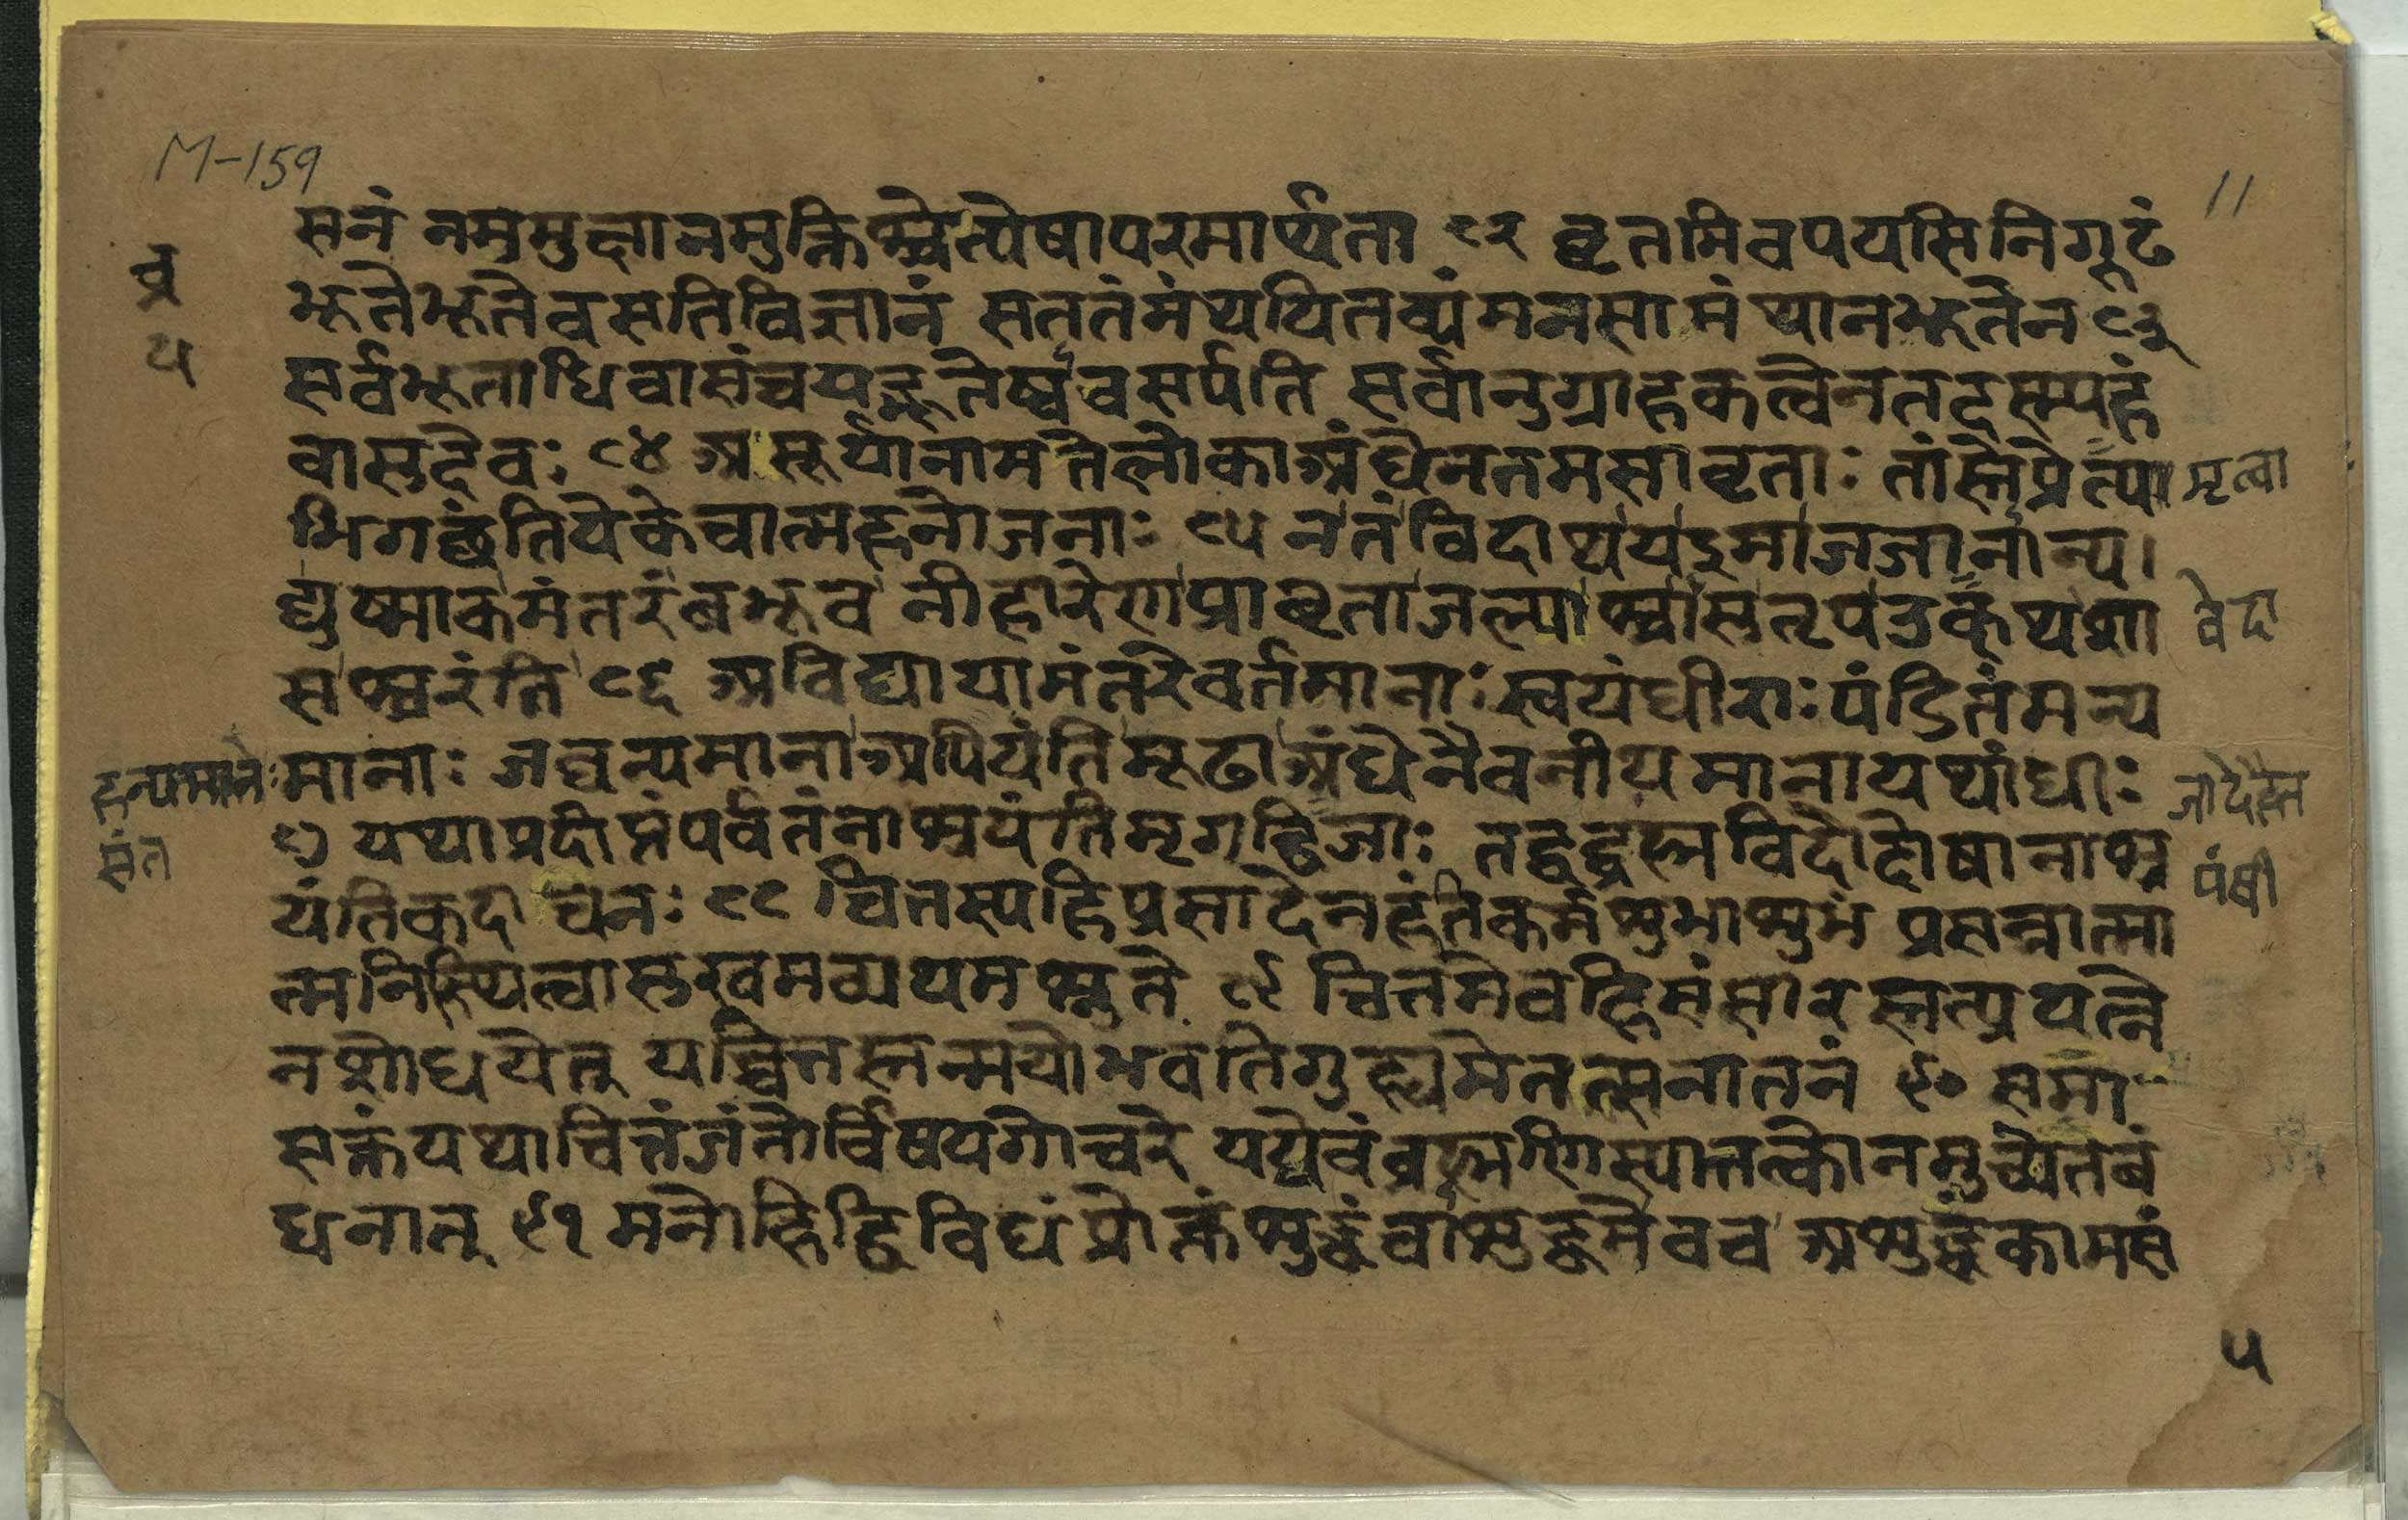 M-159
11
व्र
५
सनं नमुमुक्षानमुक्तिश्चेत्येषापरमार्थता ८२ घृतमिवपयसिनिगूढं
भूतेभूतेवसतिविज्ञानं सततंमंथयितव्यंमनसामंथानभूतेन ८३
सर्वभूताधिवासंचयद्भूतेष्ववसर्पति सर्वानुग्राहकत्वेनतदस्म्यहं
वासुदेवः ८४ असूर्यानामतेलोकाअंधेनतमसावृताः तांस्तेप्रेत्या
मृत्वा
भिगछंतियेकेचात्महनोजनाः ८५ नतंविदाथयइमाजजानान्य
द्युष्माकमंतरंबभूव नीहारेणप्रावृताजल्प्याश्चासुतृपउक्थशा
वेदा
सश्चरंति ८६ अविद्यायामंतरेवर्तमानाः स्वयंधीराः पंडितंमन्य
मानाः जघन्यमानाअपियंतिमूढाअंधेनैवनीयमानायथांधाः
हन्यमानाः
संत
८७ यथाप्रदीप्तंपर्वतंनाश्रयंतिमृगद्विजाः तद्वद्ब्रह्मविदोदोषानाश्र
पंषी
यंतिकदाचनः ८८ चित्तस्यहिप्रसादेनहंतिकर्मशुभाशुभं प्रसन्नात्मा
त्मनिस्थित्वासुखमव्ययमश्नुते ८९ चित्तमेवहिसंसारस्तत्प्रयत्ने
नशोधयेत् यच्चित्तस्तन्मयोभवतिगुह्यमेतत्सनातनं ९० समा
सक्तंयथाचित्तंजंतोर्विषयगोचरे यद्येवंब्रह्मणिस्यात्तत्कोनमुच्येतबं
धनात् ९१ मनोहिद्विविधंप्रोक्तंशुद्धंचाशुद्धमेवच अशुद्धंकामसं
५